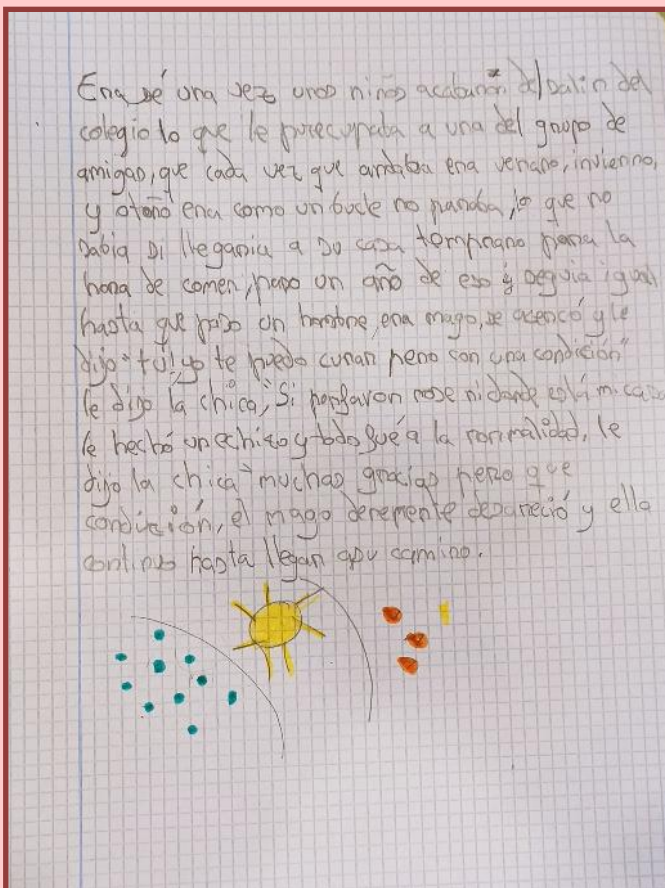 Era sé una vez unos niños acabaron del salir del
colegio lo que le preocupaba a una del grupo de
amigas, que cada vez que andaba era verano, invierno,
y otoño era como un bucle no paraba, lo que no
sabia si llegaria a su casa temprano para la
hora de comer, paso un año de eso y seguia igual
hasta que paso un hombre, era mago, se acercó y le
dijo "tú! yo te puedo curar pero con una condición"
le dijo la chica, "Si porfavor nose ni donde está mi casa
le hechó un echizo y todo fué a la normalidad, le
dijo la chica "muchas gracias pero que
condición, el mago derepente desapareció y ella
continuo hasta llegar a su camino.